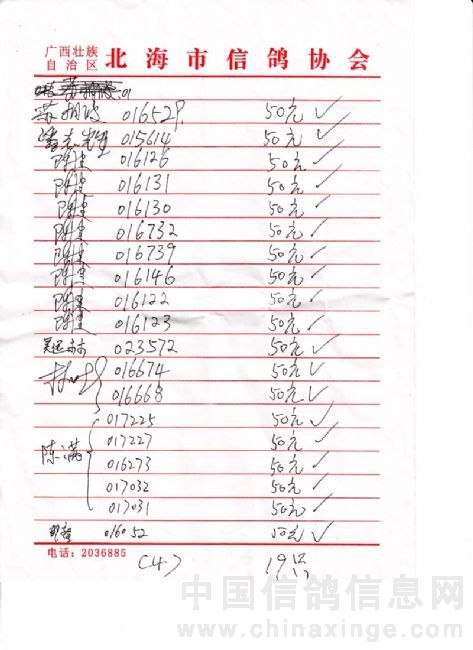 广西壮族
自治区 北海市信鸽协会
01652 50元 ✓
015614 50元 ✓
陈建 016126 50元 ✓
陈建 016131 50元 ✓
陈建 016130 50元 ✓
陈建 016732 50元 ✓
陈建 016739 50元 ✓
陈建 016146 50元 ✓
陈建 016122 50元 ✓
陈建 016123 50元 ✓
023572 50元 ✓
016674 50元 ✓
016668 50元 ✓
017225 50元 ✓
017227 50元 ✓
陈满 016273 50元 ✓
017032 50元 ✓
017031 50元 ✓
016052 50元 ✓
电话：2036885
(4) 19只
中国信鸽信息网
www.chinaxinge.com